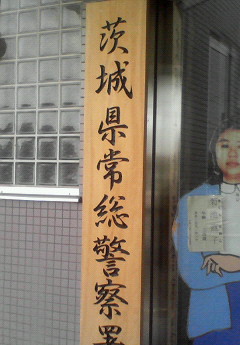 茨城県常総警察署